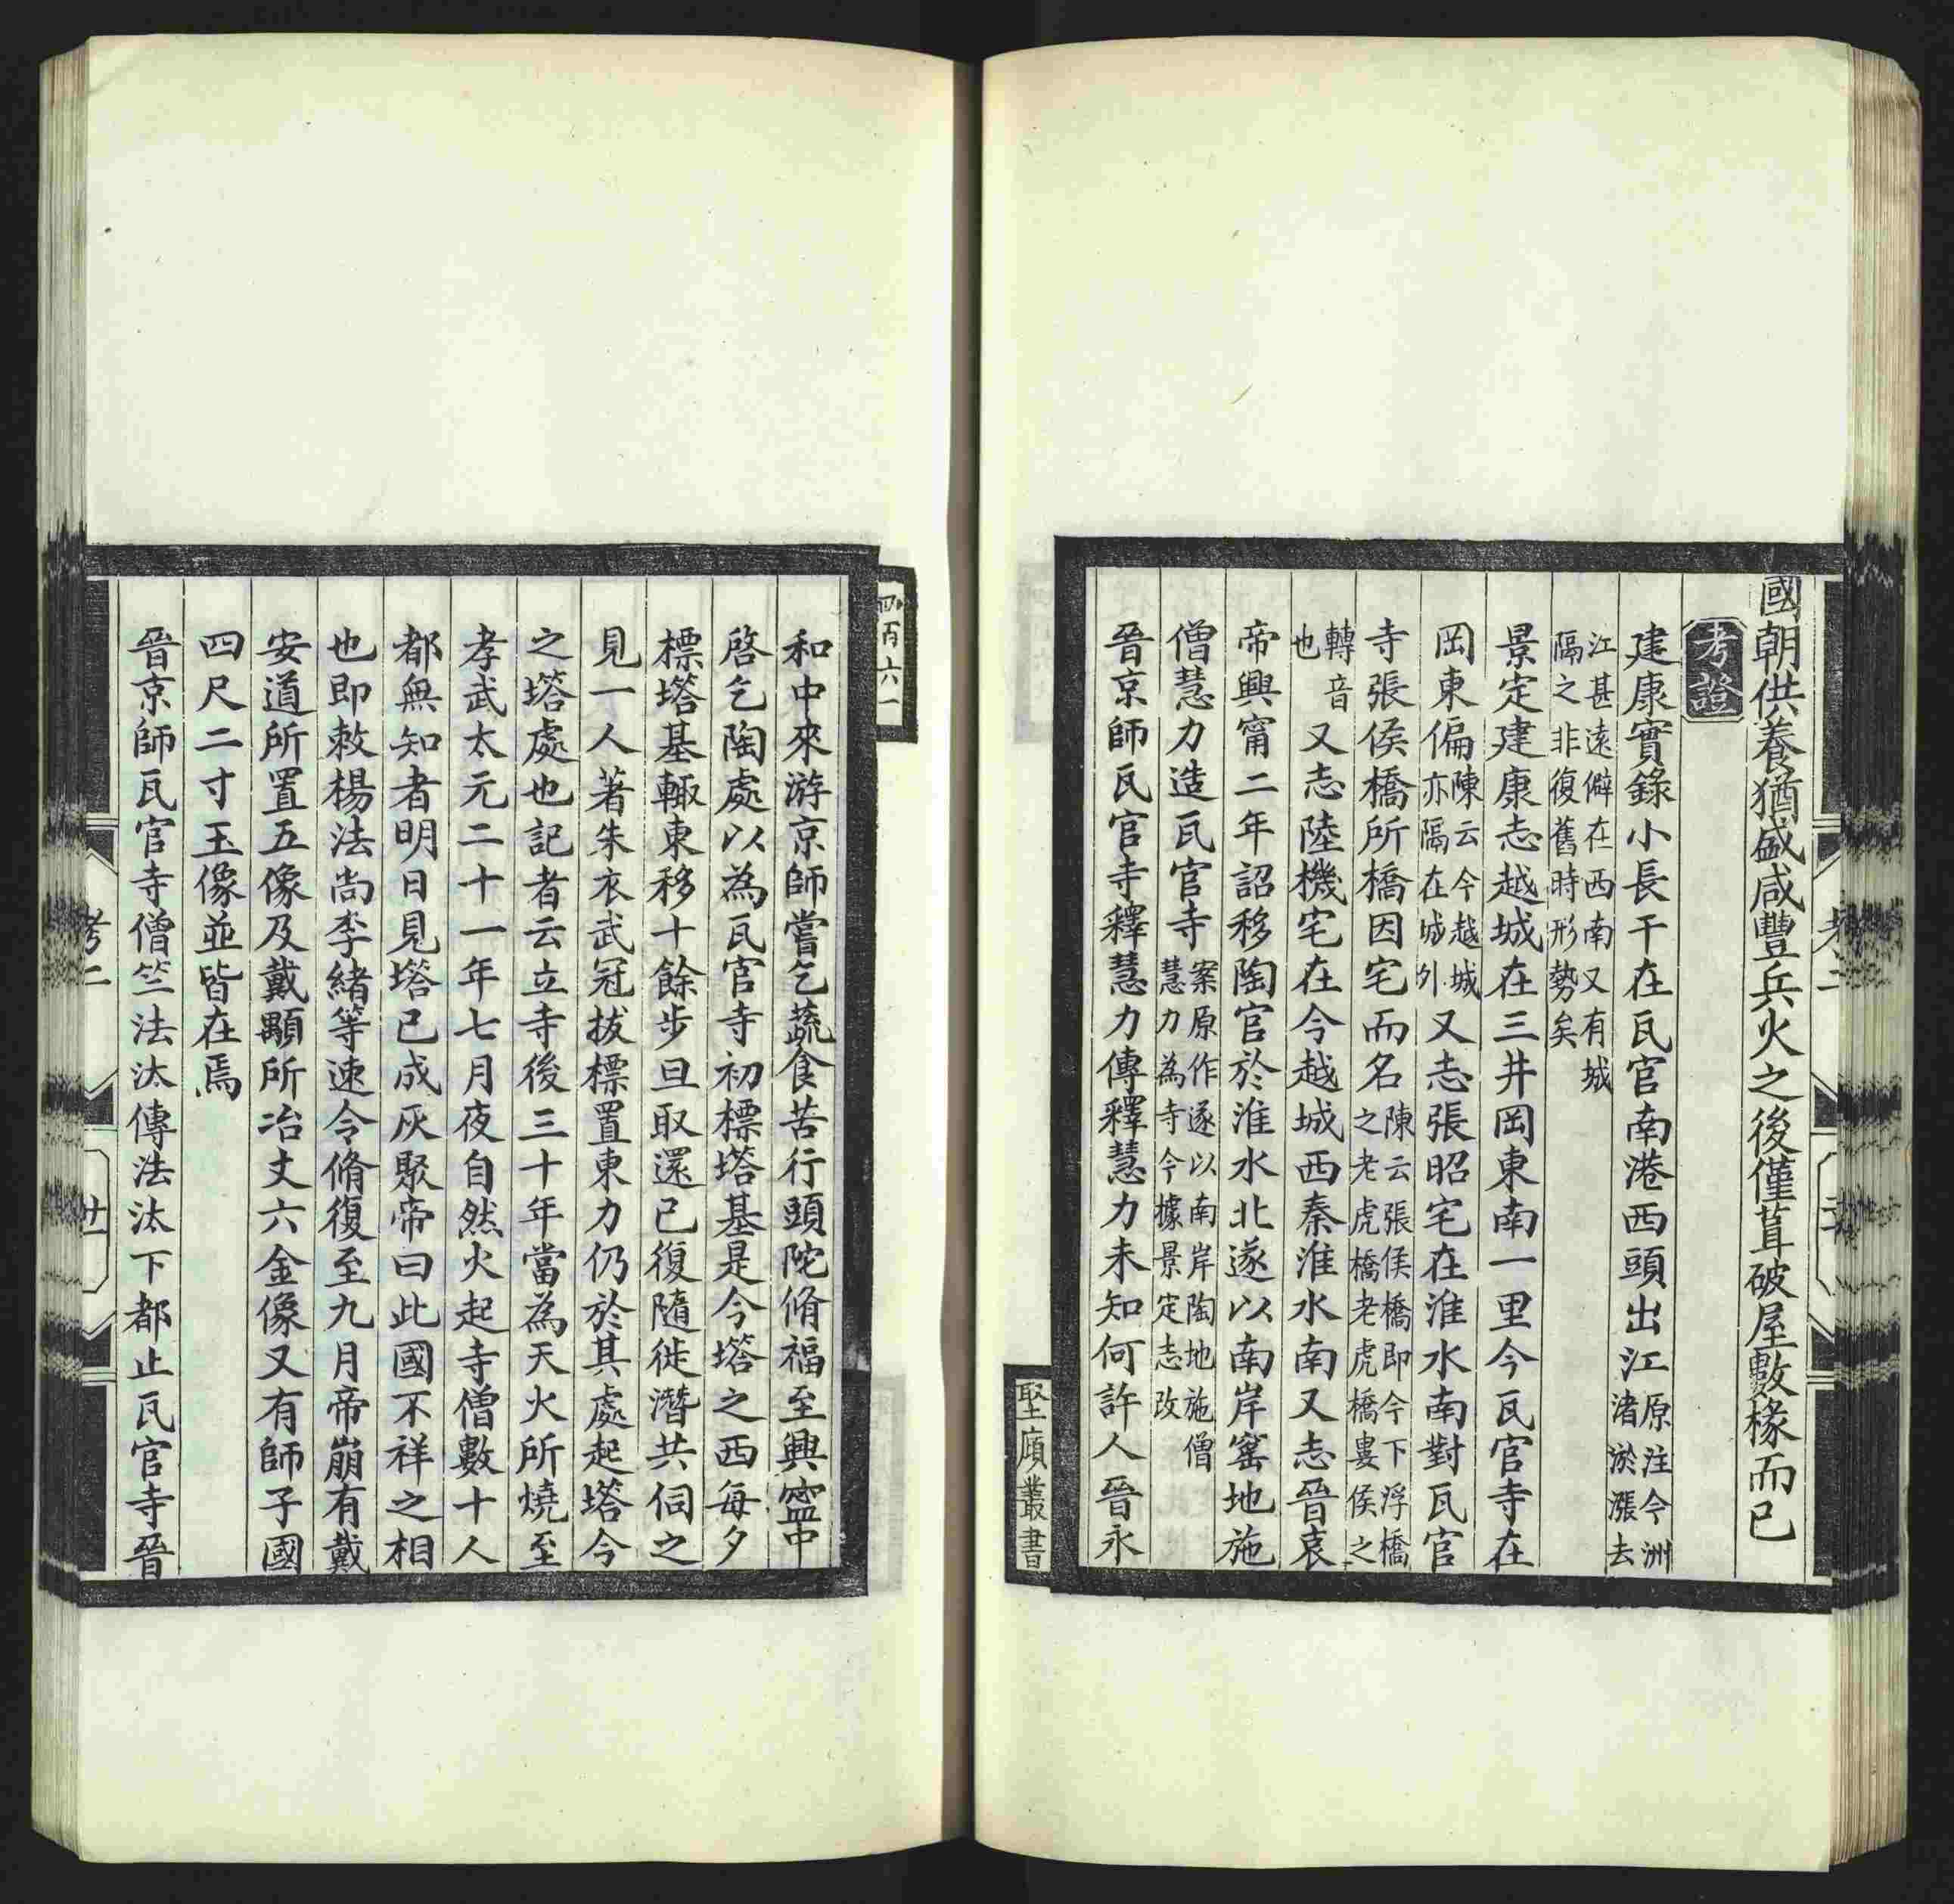 國朝供養猶盛咸豐兵火之後僅茸破屋數椽而已
考證
建康實錄小長干在瓦官南港西頭出江原注今洲渚淤漲去
江甚遠僻在西南又有城隔之非復舊時形勢矣
景定建康志越城在三井岡東南一里今瓦官寺在
岡東偏陳云今越城亦隔在城外又志張昭宅在淮水南對瓦官
寺張侯橋所橋因宅而名陳云張侯橋即今下浮橋之老虎橋老虎橋婁侯之
轉音也又志陸機宅在今越城西秦淮水南又志晉哀
帝興甯二年詔移陶官於淮水北遂以南岸窰地施
僧慧力造瓦官寺案原作遂以南岸陶地施僧慧力為寺今據景定志改
晉京師瓦官寺釋慧力傳釋慧力未知何許人晉永
堅頋叢書
四百六一
和中來游京師嘗乞蔬食苦行頭陀脩福至興寍中
啓乞陶處以為瓦官寺初標塔基是今塔之西每夕
標塔基輙東移十餘步旦取還已復隨徙潛共伺之
見一人著朱衣武冠拔標置東力仍於其處起塔今
之塔處也記者云立寺後三十年當為天火所燒至
孝武太元二十一年七月夜自然火起寺僧數十人
都無知者明日見塔已成灰聚帝曰此國不祥之相
也即敕楊法尚李緒等速令脩復至九月帝崩有戴
安道所置五像及戴顒所冶丈六金像又有師子國
四尺二寸玉像並皆在焉
晉京師瓦官寺僧竺法汰傳法汰下都止瓦官寺晉
考二
廿一